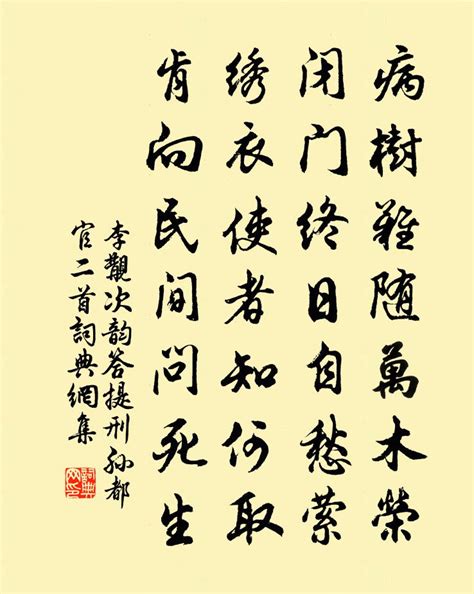 病樹難随萬木榮
闭门终日自愁萦
绣衣使者知何取
肯向民间问死生
李覯次韵答提刑孙都
官二首詞典網集
詞典
网印